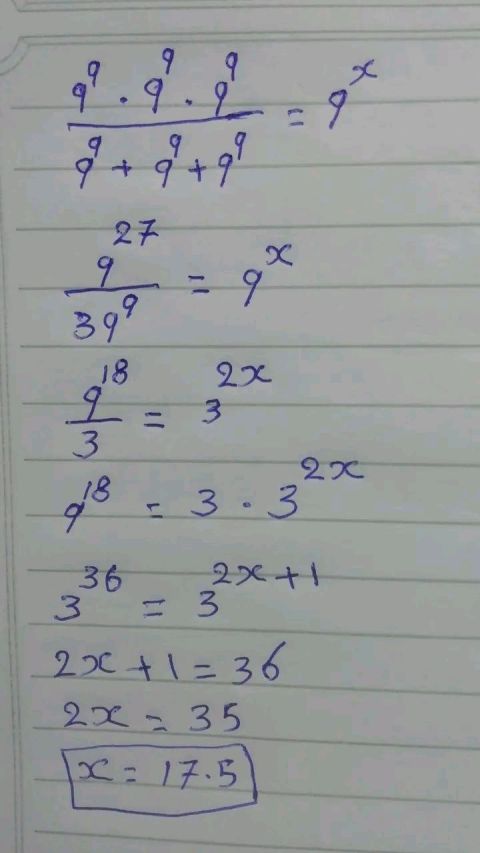 9^9 · 9^9 · 9^9 / 9^9 + 9^9 + 9^9 = 9^x
9^27 / 39^9 = 9^x
9^18 / 3 = 3^2x
9^18 = 3 · 3^2x
3^36 = 3^2x+1
2x+1=36
2x = 35
x = 17.5